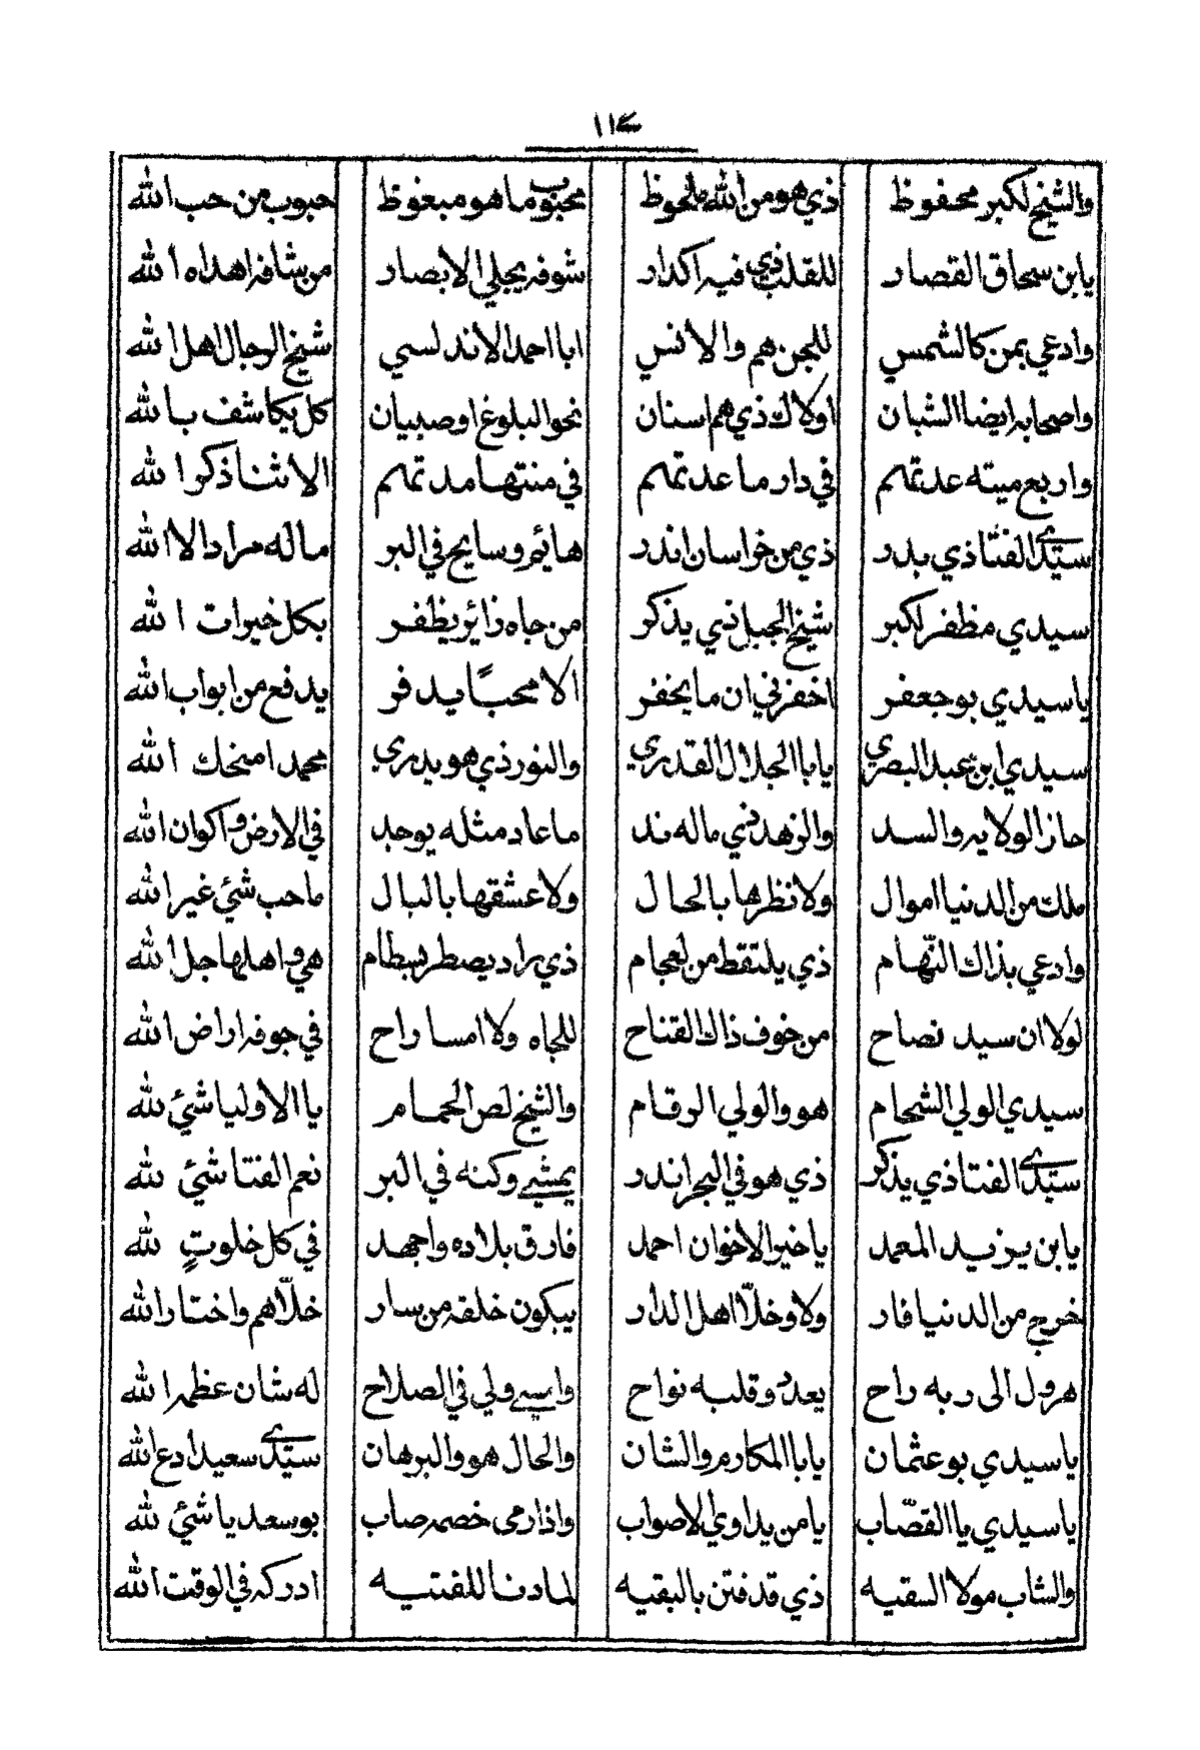 ١١٤
والشيخ لكبر محفوظ ذي هو من الله ملحوظ محبوب ما هو مبغوظ حبوب من حب الله
يابن سحاق القصار للقلب ذي فيه اكدار شوفه يجلي الابصار من شافه اهداه الله
وادعي بمن كالشمس للجن هم والانس ابا احمد الاندلسي شيخ الرجال اهل الله
واصحابه ايضا الشبان اولاك ذي هم اسنان نحو البلوغ اوصبيان كل يكاشف بالله
واربع ميته عد تمم في دار ما عد تمم في منتها مد تمم الا ثنا ذكر الله
سيدي الفتا ذي بدر ذي من خراسان اندر هايم وسايح في البر ماله مراد الا الله
سيدي مظفر لكبر شيخ الجبل ذي يذكر من جاه زائر يظفر بكل خيرات الله
ياسيدي بوجعفر اخفرني ان ما يخفر الا محبًا يدفر يدفع من ابواب الله
سيدي ابن عبد البصري يابا الجلال القدري والنور ذي هو يدري محمد امنحك الله
حاز الولايه والسد والزهد ذي ماله ند ما عاد مثله يوجد في الارض واكوان الله
ملك من الدنيا اموال ولا نظرها بالحال ولا عشقها بالبال ما حب شئ غير الله
وادعي بذاك النهّام ذي يلتقط من لعجام ذي راد يصطر بسطام هي واهلها جل الله
لولا ان سيد نصاح من خوف ذاك القناح للجاه ولا امسا راح في جوفه اراض الله
سيدي الولي الشحام هو والولي الرقام والشيخ لص الحمام يا الاوليا شئ لله
سيدي الفتا ذي يذكر ذي هو في البحر اندر يمشي وكنه في البر نعم الفتا شئ لله
يابن يزيد المعمد ياخير الاخوان احمد فارق بلاده واجهد في كل خلوتٍ لله
خرج من الدنيا فار ولاوخلّا اهل الدار يبكون خلفه من سار خلّاهم واختار الله
هرول الى ربه راح يعدد وقلبه نواح واسي ولي في الصلاح له شان عظمه الله
ياسيدي بوعثمان يابا المكارم والشان والحال هو والبرهان سيدي سعيد ادع الله
ياسيدي يا القصّاب يامن يداوي لاصواب واذا رمى خصمه صاب بوسعد ياشئ لله
والشاب مولا السقيه ذي قد فتن بالبقيه لما دنا للفتيه ادركه في الوقت الله